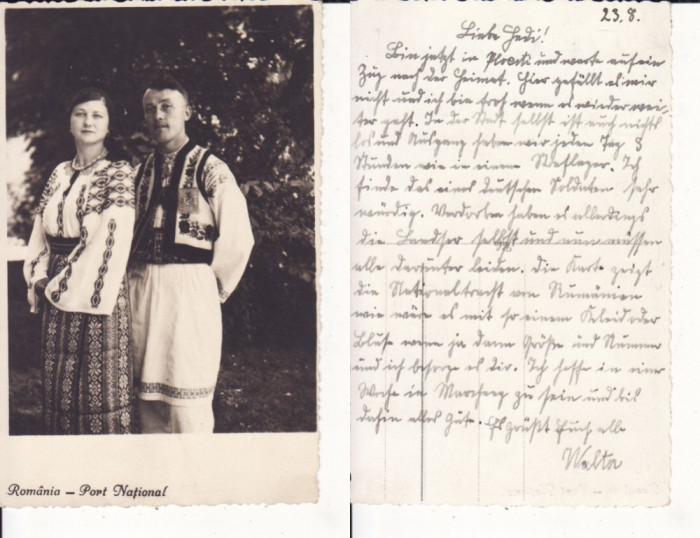 România – Port Național
23.8.
Liebe Hedi!
Bin jetzt in Ploesti und warte auf ein
Zug nach der Heimat. Hier gefällt es mir
nicht und ich bin froh wenn es wieder wei-
ter geht. In der Stadt selbst ist auch nichts
los und Ausgang haben wir jeden Tag 3
Stunden wie in einem Straflager. Ich
finde das eines deutschen Soldaten sehr
würdig. Verdorben haben es allerdings
die Landser selbst und nun müssen
alle darunter leiden. Die Karte zeigt
die Nationaltracht von Rumänien
wie wäre es mit so einem Kleid oder
Bluse wenn ja dann Größe und Nummer
und ich besorge es Dir. Ich hoffe in einer
Woche in zu sein und bis
dahin alles Gute. Es grüßt Euch alle